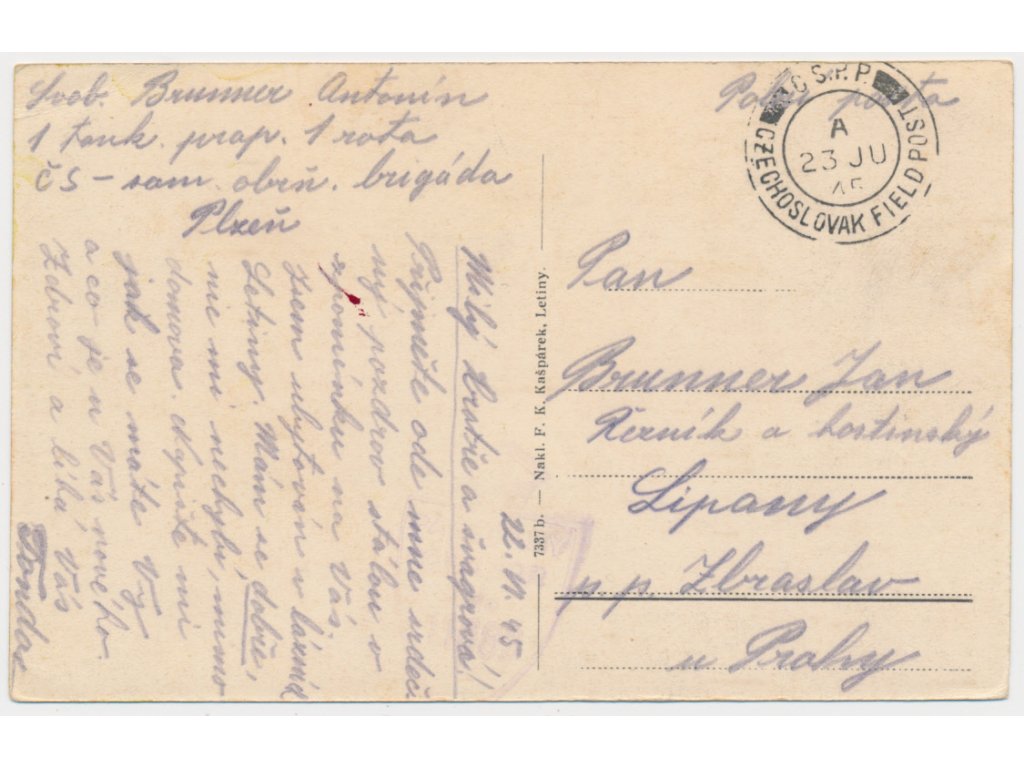 Svob. Brunner Antonín
1 tank. prap. 1 rota
ČS – sam. obrň. brigáda
Plzeň
Polní pošta
Č S. P. P.
CZECHOSLOVAK FIELD POST
A
23 JU
45
22. VI. 45
Milý bratře a švagrová!
Přijměte ode mne srdeč
ný pozdrav stálou v
zpomínku na Vás.
Jsem ubytován v lázních
Letiny. Mám se dobře,
nic mi nechybí, mimo
domova. Napište mi
jak se máte Vy
a co je u Vás nového.
Zdraví a líbá Vás
Tonda
7337b. — Nakl. F. K. Kašpárek, Letiny.
Pan
Brunner Jan
Řezník a hostinský
Lipany
p. p. Zbraslav
u Prahy